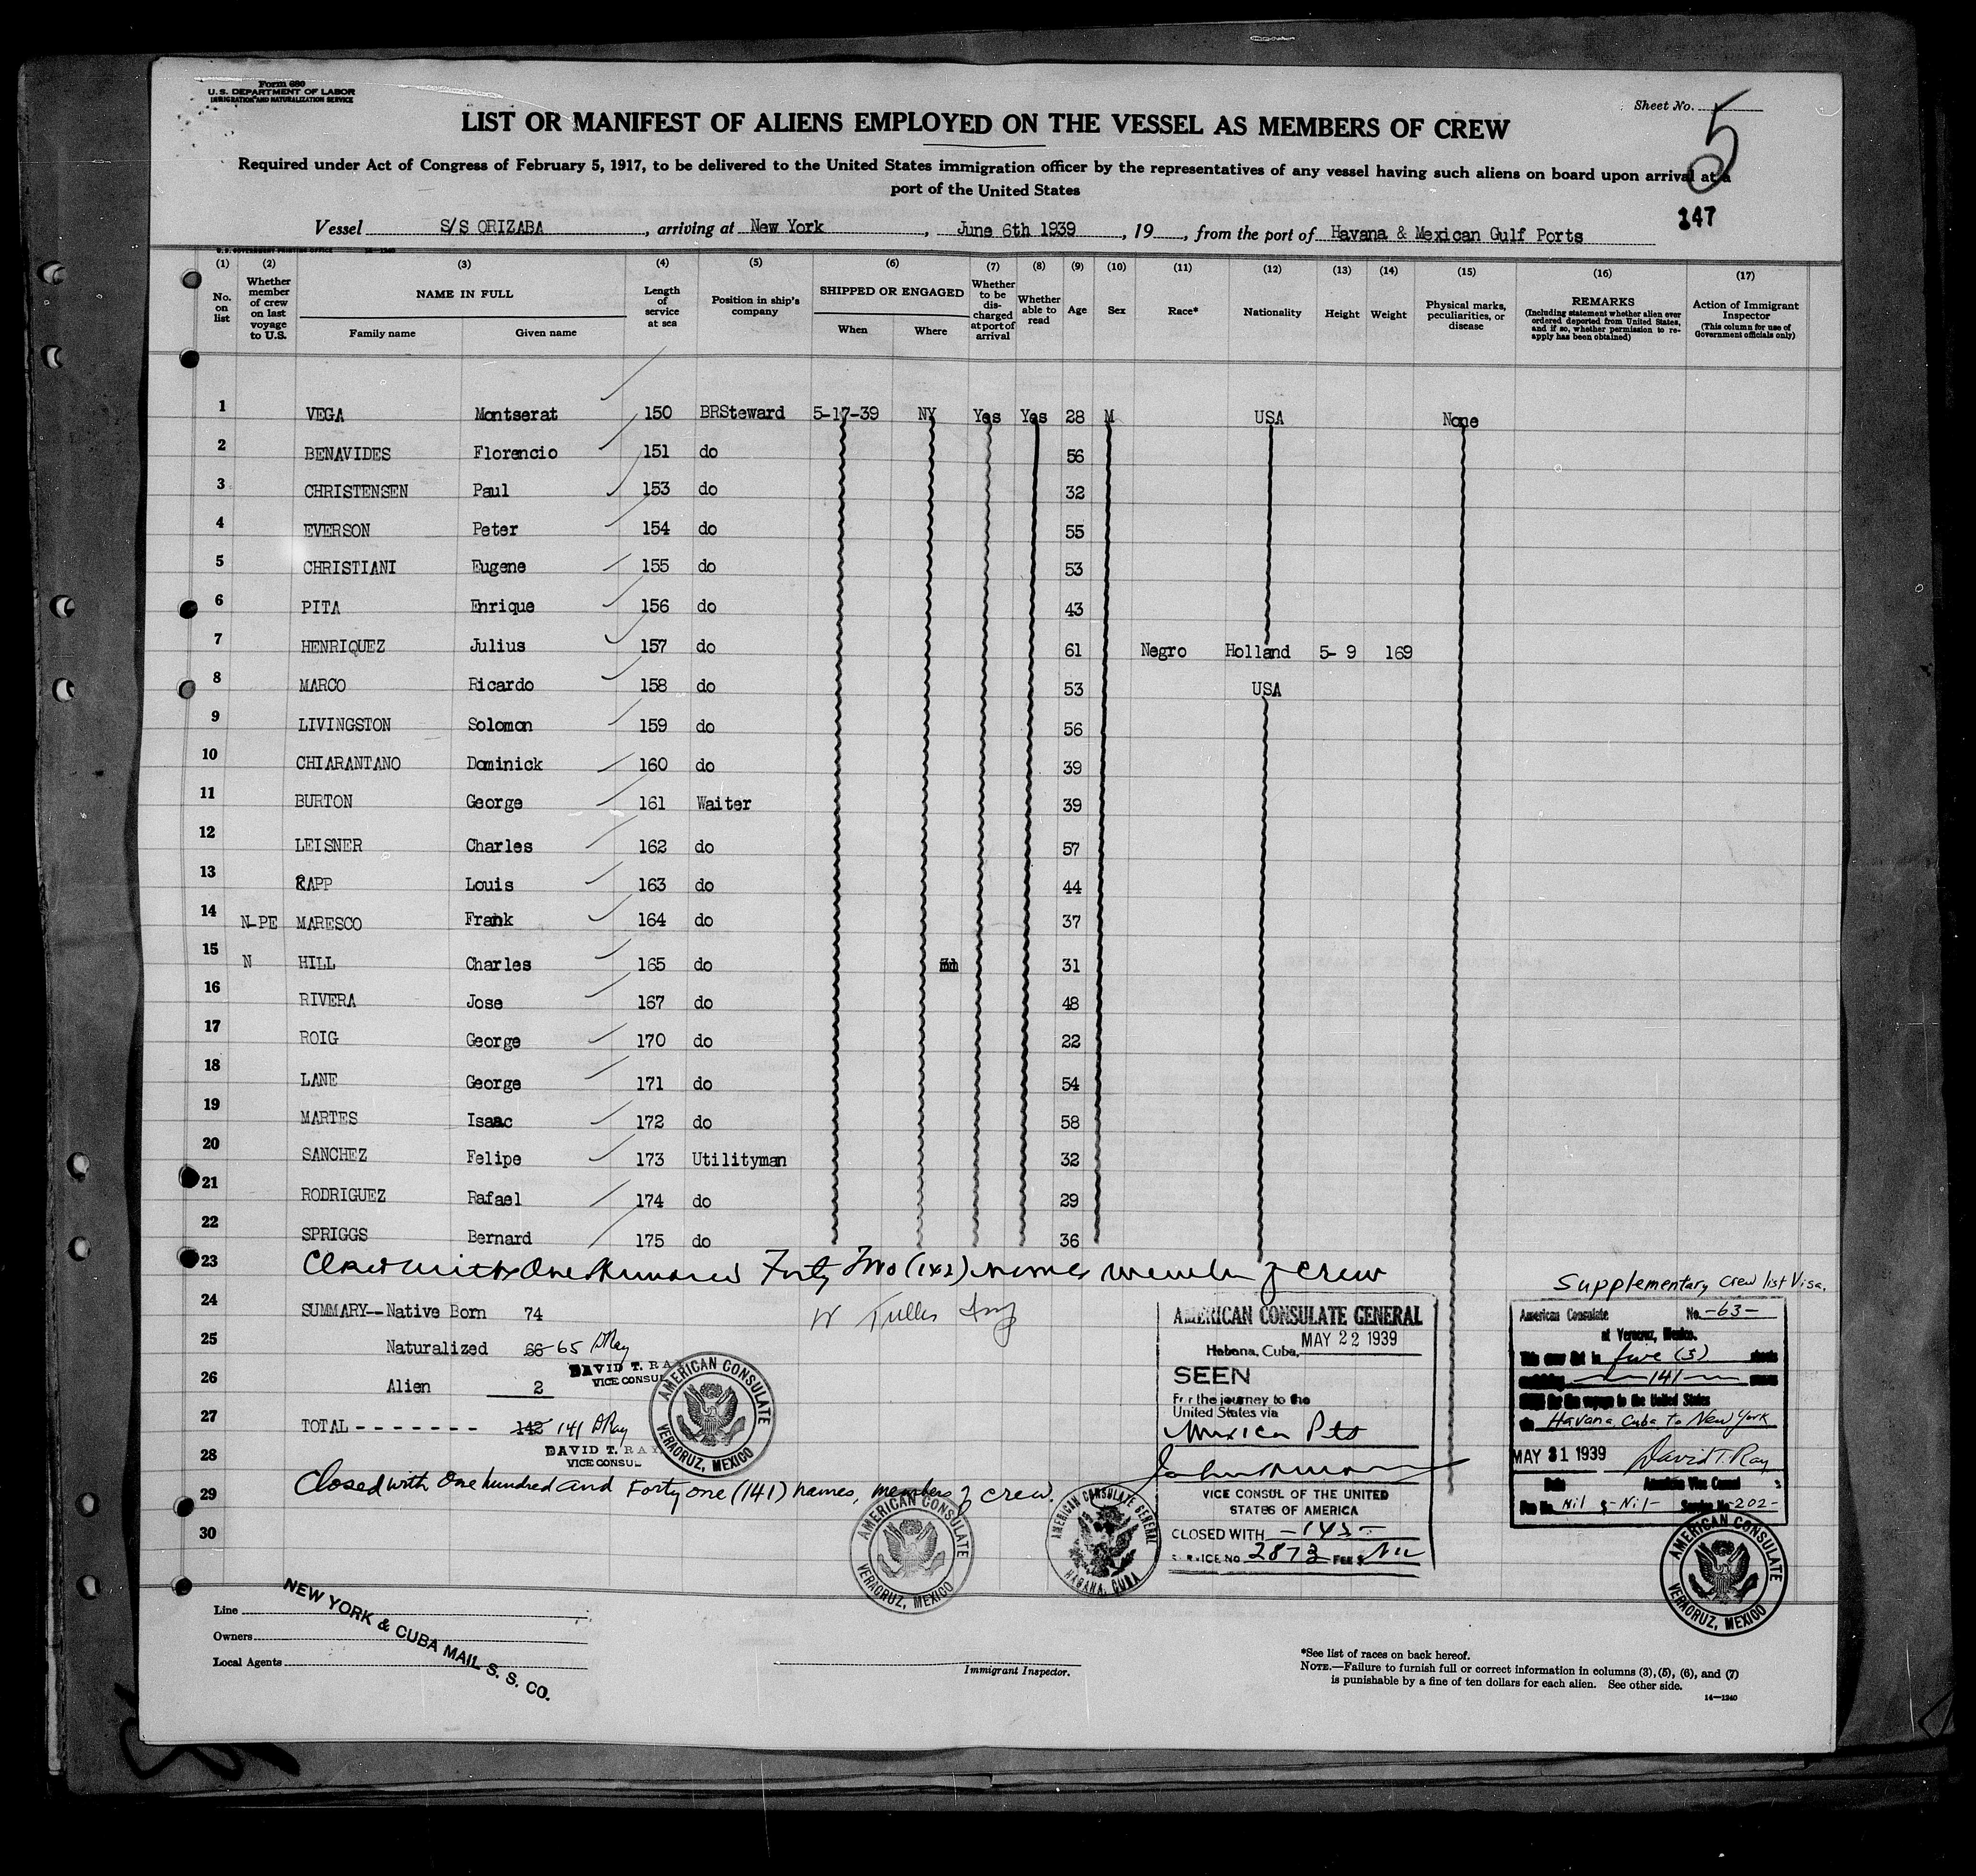 Form 680
U.S. DEPARTMENT OF LABOR
IMMIGRATION AND NATURALIZATION SERVICE
Sheet No. 5
LIST OR MANIFEST OF ALIENS EMPLOYED ON THE VESSEL AS MEMBERS OF CREW
Required under Act of Congress of February 5, 1917, to be delivered to the United States immigration officer by the representatives of any vessel having such aliens on board upon arrival at a
port of the United States
147
Vessel S/S ORIZABA, arriving at New York, June 6th 1939, 19, from the port of Havana & Mexican Gulf Ports
U.S. GOVERNMENT PRINTING OFFICE 14-1240
(1) (2) (3) (4) (5) (6) (7) (8) (9) (10) (11) (12) (13) (14) (15) (16) (17)
No. on list
Whether member of crew on last voyage to U.S.
NAME IN FULL
Family name Given name
Length of service at sea
Position in ship's company
SHIPPED OR ENGAGED
When Where
Whether to be discharged at port of arrival
Whether able to read
Age
Sex
Race*
Nationality
Height
Weight
Physical marks, peculiarities, or disease
REMARKS
(Including statement whether alien ever ordered deported from United States, and if so, whether permission to reapply has been obtained)
Action of Immigrant Inspector
(This column for use of Government officials only)
1 VEGA Montserat 150 BRSteward 5-17-39 NY Yes Yes 28 M USA None
2 BENAVIDES Florencio 151 do 56
3 CHRISTENSEN Paul 153 do 32
4 EVERSON Peter 154 do 55
5 CHRISTIANI Eugene 155 do 53
6 PITA Enrique 156 do 43
7 HENRIQUEZ Julius 157 do 61 Negro Holland 5- 9 169
8 MARCO Ricardo 158 do 53 USA
9 LIVINGSTON Solomon 159 do 56
10 CHIARANTANO Dominick 160 do 39
11 BURTON George 161 Waiter 39
12 LEISNER Charles 162 do 57
13 RAPP Louis 163 do 44
14 N-PE MARESCO Frank 164 do 37
15 N HILL Charles 165 do 31
16 RIVERA Jose 167 do 48
17 ROIG George 170 do 22
18 LANE George 171 do 54
19 MARTES Isaac 172 do 58
20 SANCHEZ Felipe 173 Utilityman 32
21 RODRIGUEZ Rafael 174 do 29
22 SPRIGGS Bernard 175 do 36
23 Closed with One Hundred Forty Two (142) names members of crew
Supplementary crew list Visa.
24 SUMMARY--Native Born 74
25 Naturalized 66 65 DRay
DAVID T. RAY
VICE CONSUL
26 Alien 2
27 TOTAL - - - - - - - 142 141 DRay
DAVID T. RAY
VICE CONSUL
28
29 Closed with One hundred and Forty one (141) names, members of crew.
30
AMERICAN CONSULATE VERACRUZ, MEXICO
AMERICAN CONSULATE VERACRUZ, MEXICO
AMERICAN CONSULATE GENERAL HABANA, CUBA
AMERICAN CONSULATE GENERAL
Habana, Cuba, MAY 22 1939
SEEN
For the journey to the
United States via
Mexican Pts
VICE CONSUL OF THE UNITED
STATES OF AMERICA
CLOSED WITH
SERVICE NO. 2873 FEE $ Nil
American Consulate No. -63-
at Veracruz, Mexico.
This crew list in five (5) sheets
141
for the voyage to the United States
via Havana, Cuba to New York
MAY 31 1939 David T. Ray
Date American Vice Consul
Fee No. Nil $-Nil- Service No. -202-
AMERICAN CONSULATE VERACRUZ, MEXICO
Line
Owners
Local Agents
NEW YORK & CUBA MAIL S. S. CO.
Immigrant Inspector.
*See list of races on back hereof.
NOTE.—Failure to furnish full or correct information in columns (3), (5), (6), and (7)
is punishable by a fine of ten dollars for each alien. See other side.
14—1240